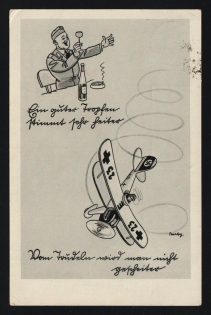 Ein guter Tropfen
stimmt sehr heiter
23
23
Vom Trudeln wird man nicht
gescheiter